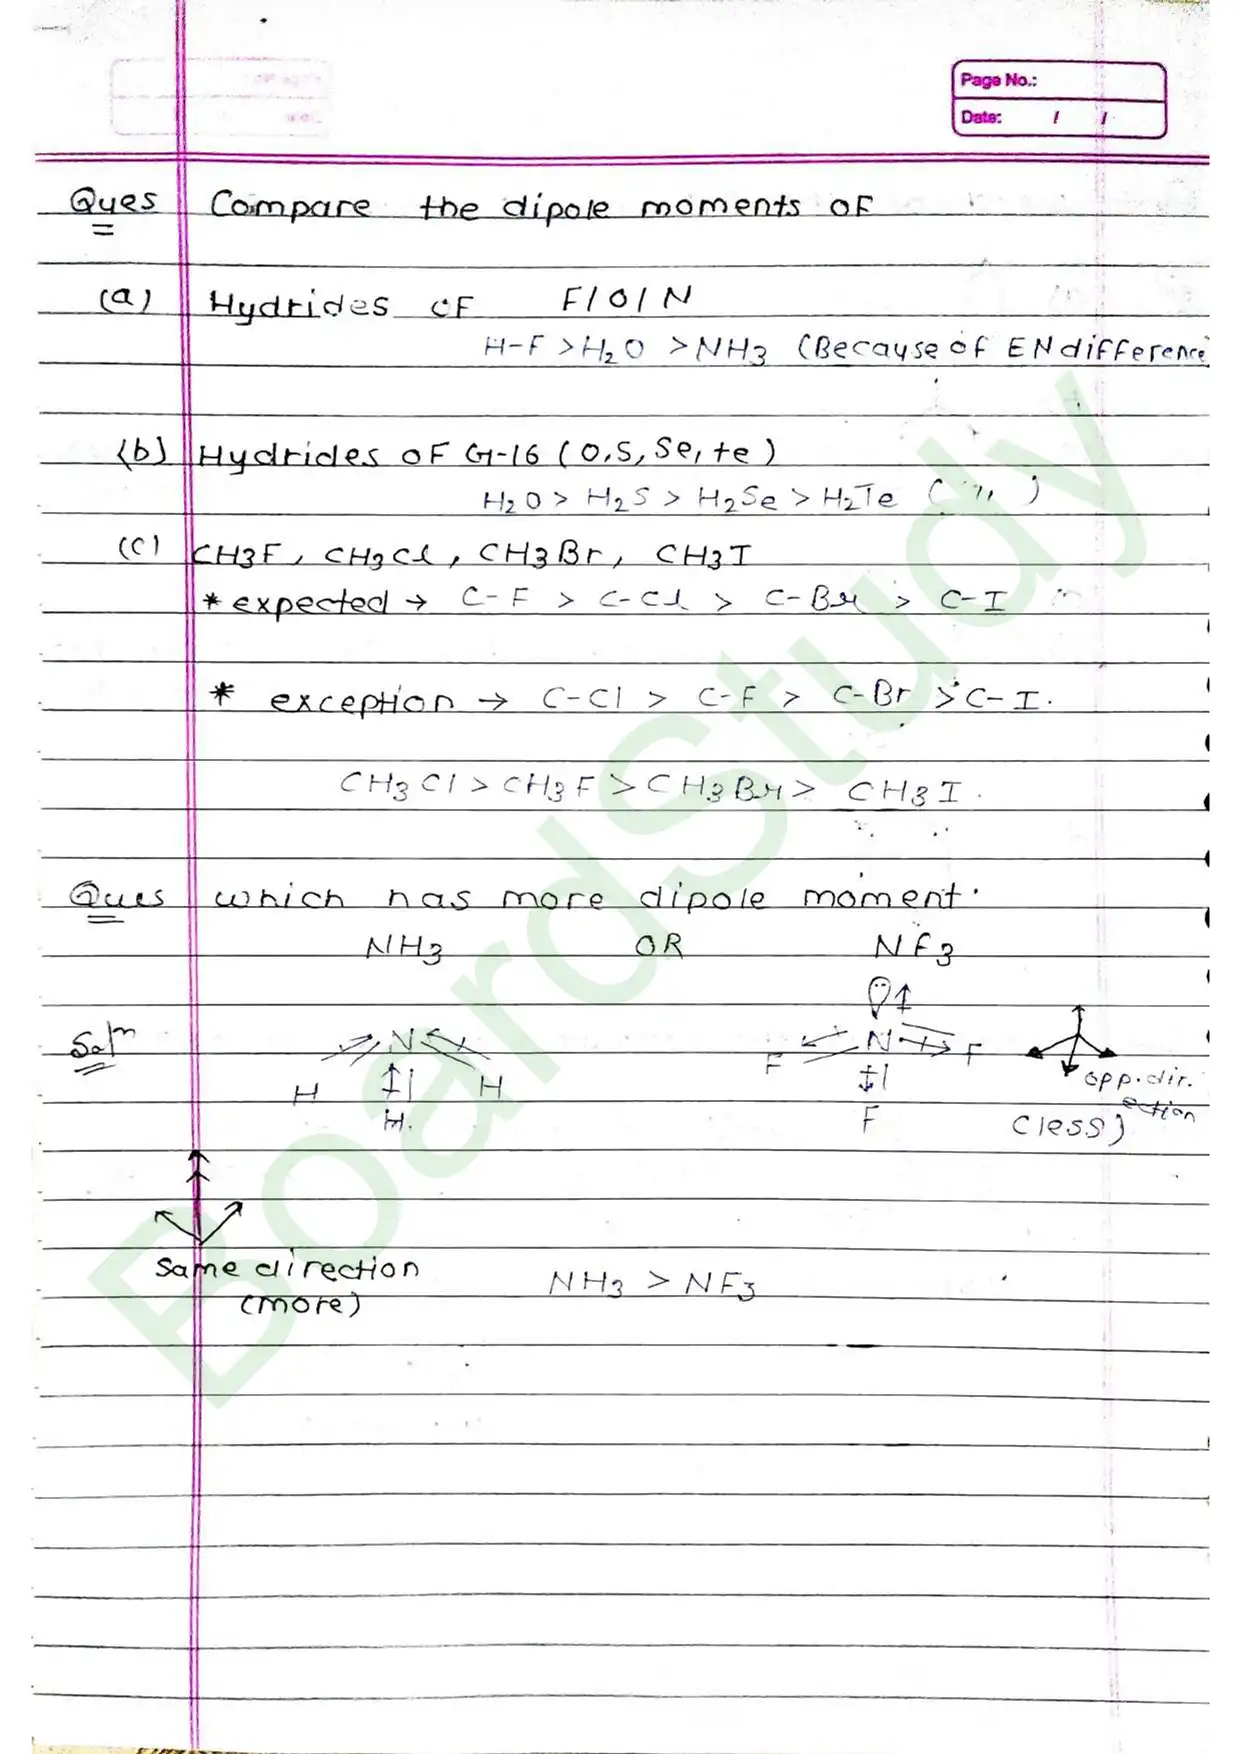 Page No.:
Date: / /
Ques Compare the dipole moments of
(a) Hydrides of F/O/N
H-F > H2O > NH3 (Because of EN difference
(b) Hydrides of G-16 (O,S,Se,te)
H2O > H2S > H2Se > H2Te ( " )
(c) CH3F, CH3Cl, CH3Br, CH3I
* expected → C-F > C-Cl > C-Br > C-I
* exception → C-Cl > C-F > C-Br > C-I.
CH3Cl > CH3F > CH3Br > CH3I.
Ques which has more dipole moment.
NH3 OR NF3
Soln N N
H H F F
H. F
opp.dir.
ection
(less)
Same direction
(more)
NH3 > NF3
BoardStudy